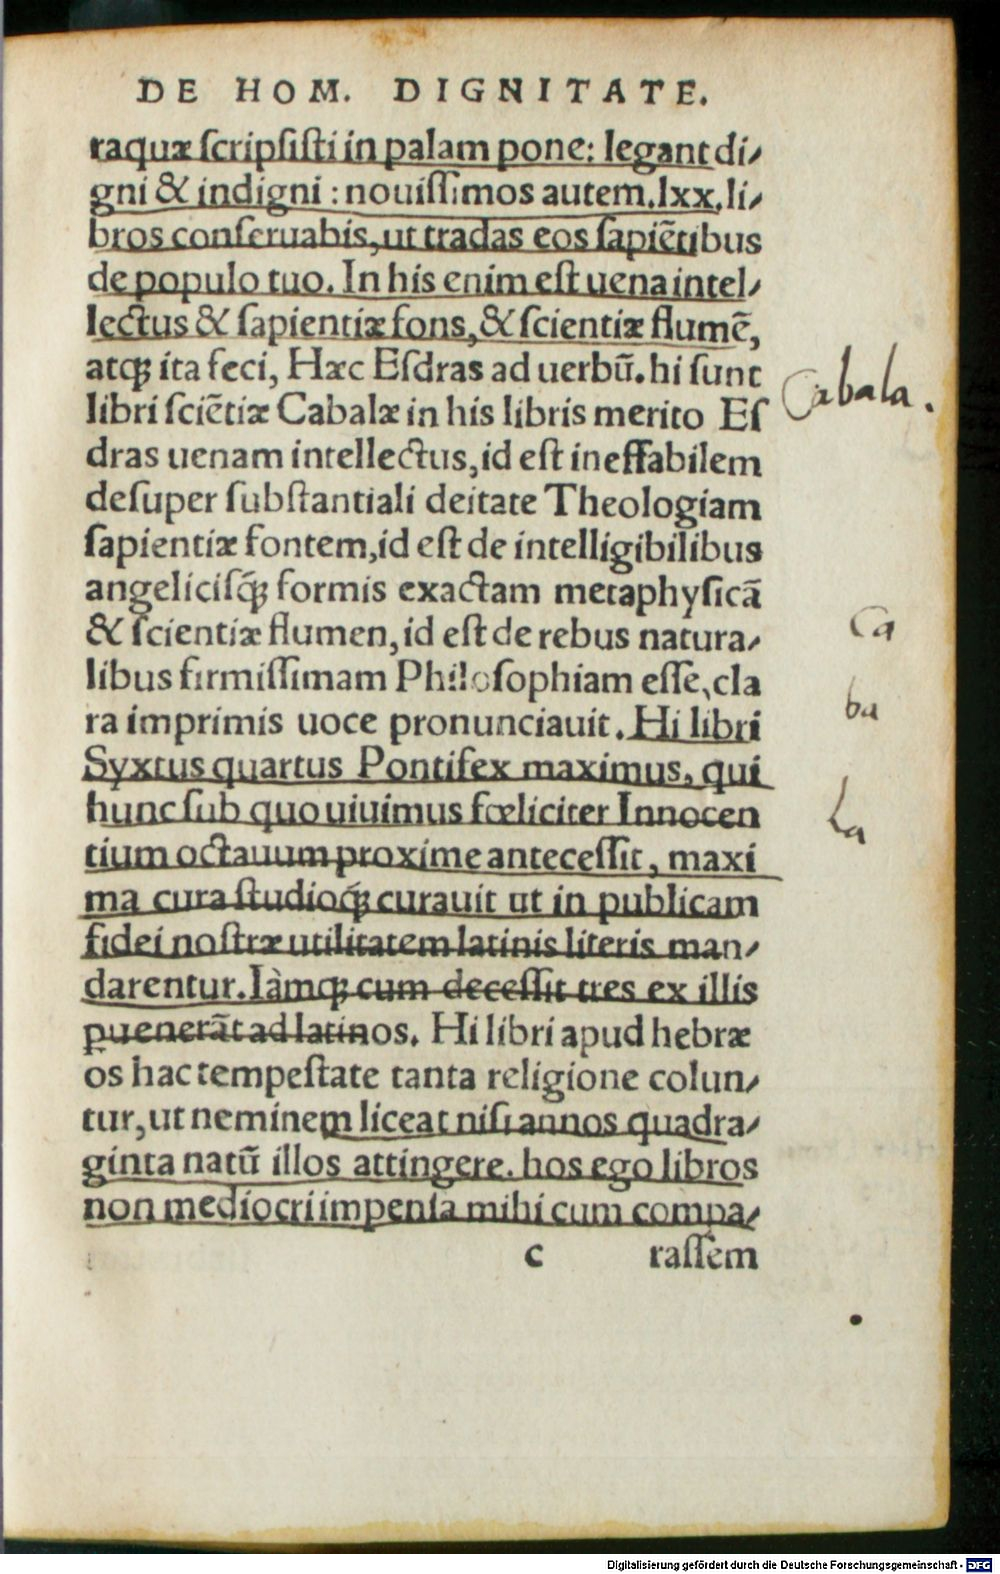 DE HOM. DIGNITATE.
raquæ ſcripſiſti in palam pone: legant di-
gni & indigni : nouiſſimos autem.lxx.li-
bros conſeruabis, ut tradas eos ſapiētibus
de populo tuo. In his enim eſt uena intel-
lectus & ſapientiæ fons, & ſcientiæ flumē,
atqꝫ ita feci, Hæc Eſdras ad uerbū. hi ſunt
libri ſciētiæ Cabalæ in his libris merito Eſ
dras uenam intellectus, id eſt ineffabilem
deſuper ſubſtantiali deitate Theologiam
ſapientiæ fontem, id eſt de intelligibilibus
angeliciſq́ꝫ formis exactam metaphyſicā
& ſcientiæ flumen, id eſt de rebus natura-
libus firmiſſimam Philoſophiam eſſe, cla
ra imprimis uoce pronunciauit. Hi libri
Syxtus quartus Pontifex maximus, qui
hunc ſub quo uiuimus fœliciter Innocen
tium octauum proxime anteceſſit, maxi
ma cura ſtudioq́ꝫ curauit ut in publicam
fidei noſtræ utilitatem latinis literis man-
darentur. Iàmqꝫ cum deceſſit tres ex illis
ꝑuenerāt ad latinos. Hi libri apud hebræ
os hac tempeſtate tanta religione colun-
tur, ut neminem liceat niſi annos quadra-
ginta natū illos attingere. hos ego libros
non mediocri impenſa mihi cum compa-
c raſſem
Cabala.
Ca
ba
La
Digitalisierung gefördert durch die Deutsche Forschungsgemeinschaft - DFG